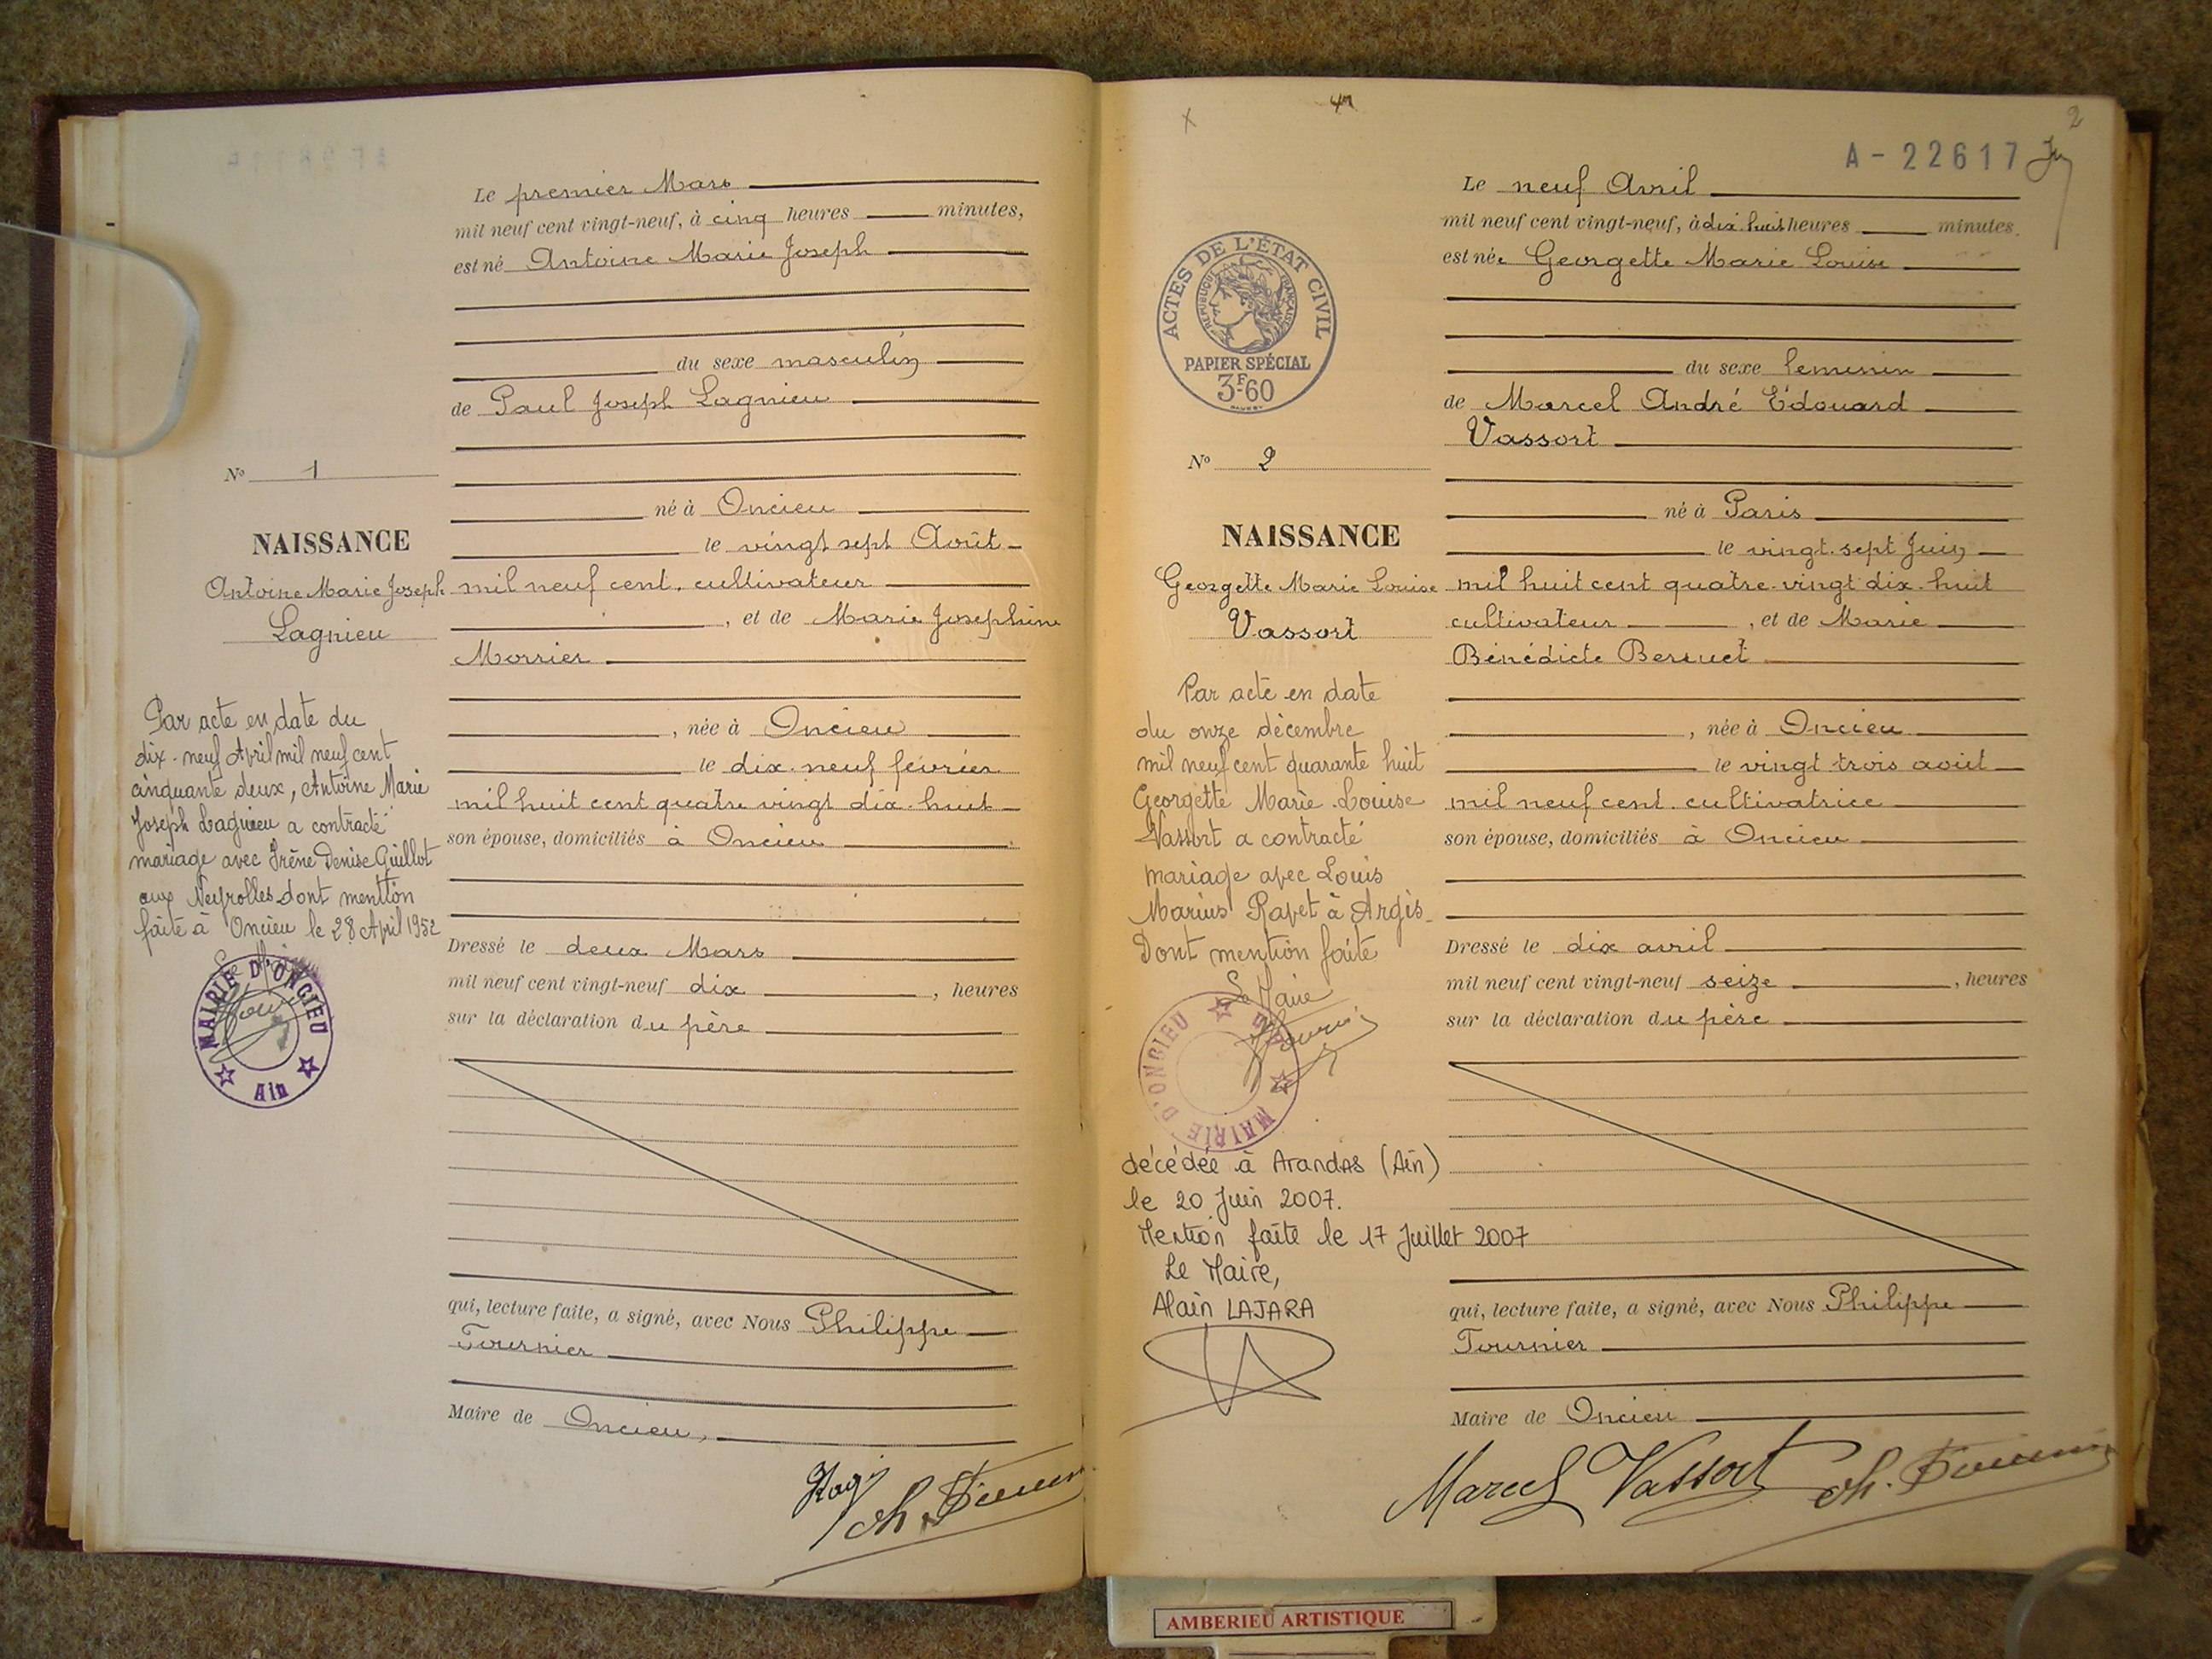 Le premier Mars
mil neuf cent vingt-neuf, à cinq heures minutes,
est né Antoine Marie Joseph
du sexe masculin
de Paul Joseph Lagnieu
No 1
né à Oncieu
NAISSANCE
le vingt sept Août
Antoine Marie Joseph
Lagnieu
mil neuf cent. cultivateur
, et de Marie Josephine
Morrier
, née à Oncieu
le dix-neuf février
mil huit cent quatre vingt dix-huit
son épouse, domiciliés à Oncieu
Par acte en date du
dix-neuf Avril mil neuf cent
cinquante deux, Antoine Marie
Joseph Lagnieu a contracté
mariage avec Irène Denise Guillot
aux Neyrolles dont mention
faite à Oncieu le 28 Avril 1952
Le Maire
MAIRIE D'ONCIEU
Ain
Dressé le deux Mars
mil neuf cent vingt-neuf dix , heures
sur la déclaration du père
qui, lecture faite, a signé, avec Nous Philippe
Tournier
Maire de Oncieu,
2
A-22617
Le neuf Avril
mil neuf cent vingt-neuf, à dix-huit heures minutes.
est née Georgette Marie Louise
ACTES DE L'ÉTAT CIVIL
RÉPUBLIQUE FRANÇAISE
PAPIER SPÉCIAL
3F60
du sexe feminin
de Marcel André Édouard
Vassort
No 2
né à Paris
NAISSANCE
le vingt-sept Juin
Georgette Marie Louise
Vassort
mil huit cent quatre-vingt dix-huit
cultivateur , et de Marie
Bénédicte Berruet
, née à Oncieu
le vingt trois août
mil neuf cent. cultivatrice
son épouse, domiciliés à Oncieu
Par acte en date
du onze décembre
mil neuf cent quarante huit
Georgette Marie-Louise
Vassort a contracté
mariage avec Louis
Marius Ravet à Argis
Dont mention faite
Le Maire
MAIRIE D'ONCIEU
décédée à Arandas (Ain)
le 20 Juin 2007.
Mention faite le 17 Juillet 2007
Le Maire,
Alain LAJARA
Dressé le dix avril
mil neuf cent vingt-neuf seize , heures
sur la déclaration du père
qui, lecture faite, a signé, avec Nous Philippe
Tournier
Maire de Oncieu
Marcel Vassort Ph. Tournier
AMBERIEU ARTISTIQUE